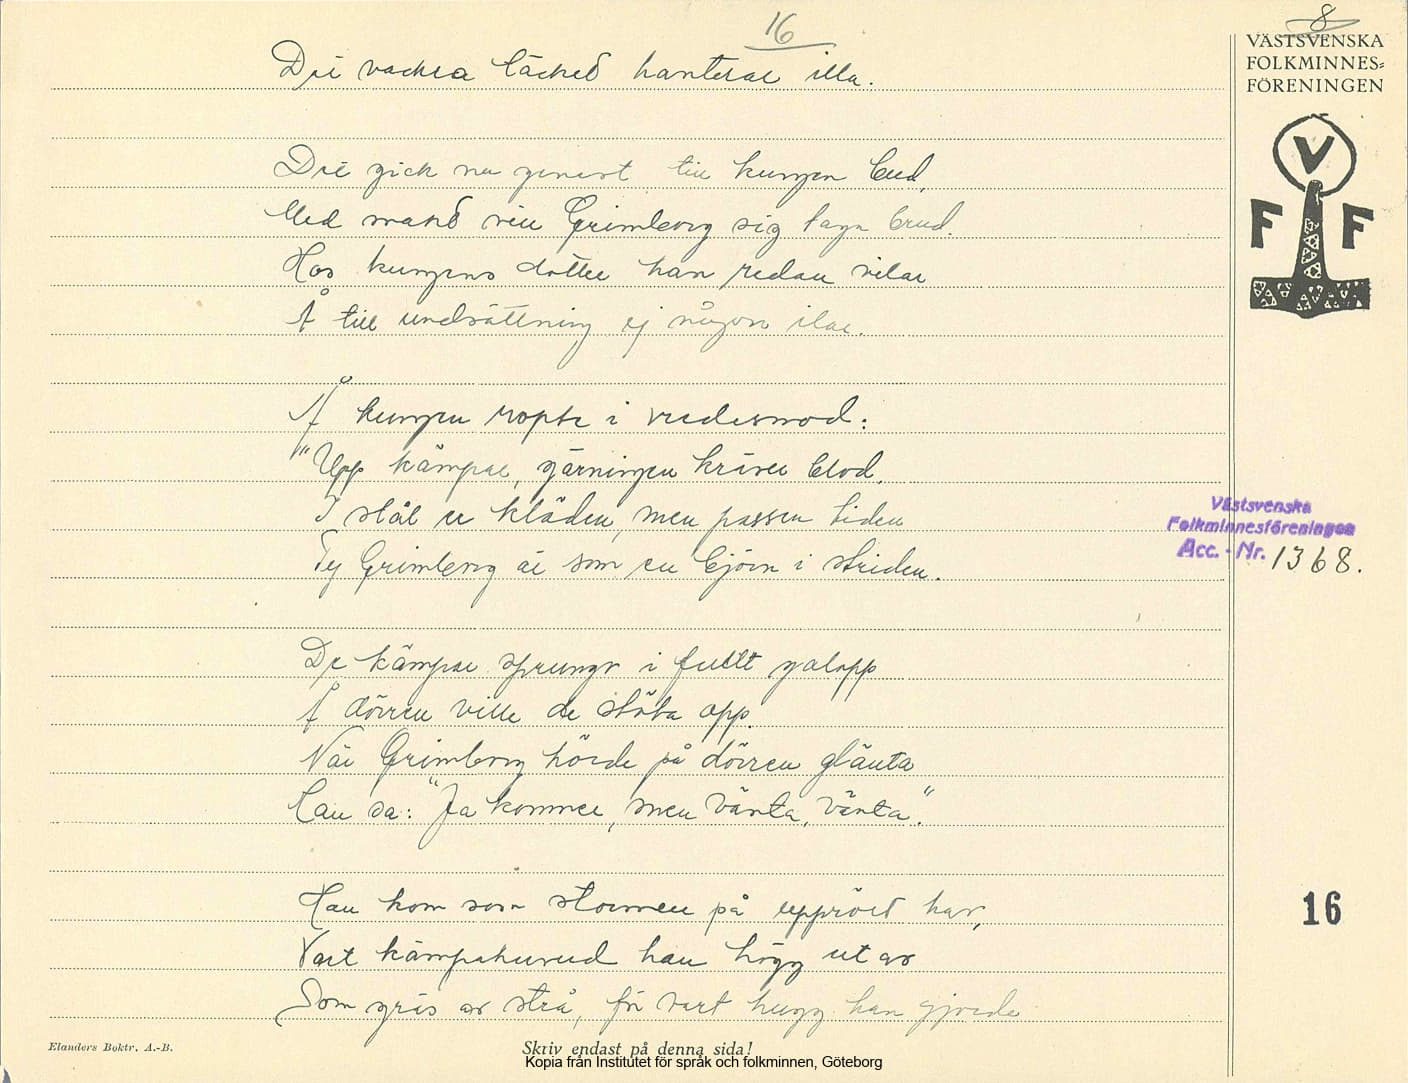 16
8
Där vackra täcket hanterar illa.
Där gick nu genast till kungen bud,
Med makt vill Grimborg sig taga brud.
Hos kungens dotter han redan vilar
Å till undsättning ej någon ilar.
Å kungen ropte i vredesmod:
"Upp kämpar, gärningen kräver blod.
I stål er kläden, men passen tiden
Ty Grimborg är som en björn i striden.
De kämpar sprungo i fullt galopp
Å dörren ville de stöta opp.
När Grimborg hörde på dörren glänta
Han sa: "Ja kommer, men vänta, vänta".
Han kom som stormen på upprört hav,
Vart kämpahuvud han högg ut av
Som gräs av strå, för vart hugg han gjorde
VÄSTSVENSKA
FOLKMINNES=
FÖRENINGEN
V
F F
Västsvenska
Folkminnesföreningen
Acc. - Nr. 1368.
16
Elanders Boktr. A.-B.
Skriv endast på denna sida!
Kopia från Institutet för språk och folkminnen, Göteborg